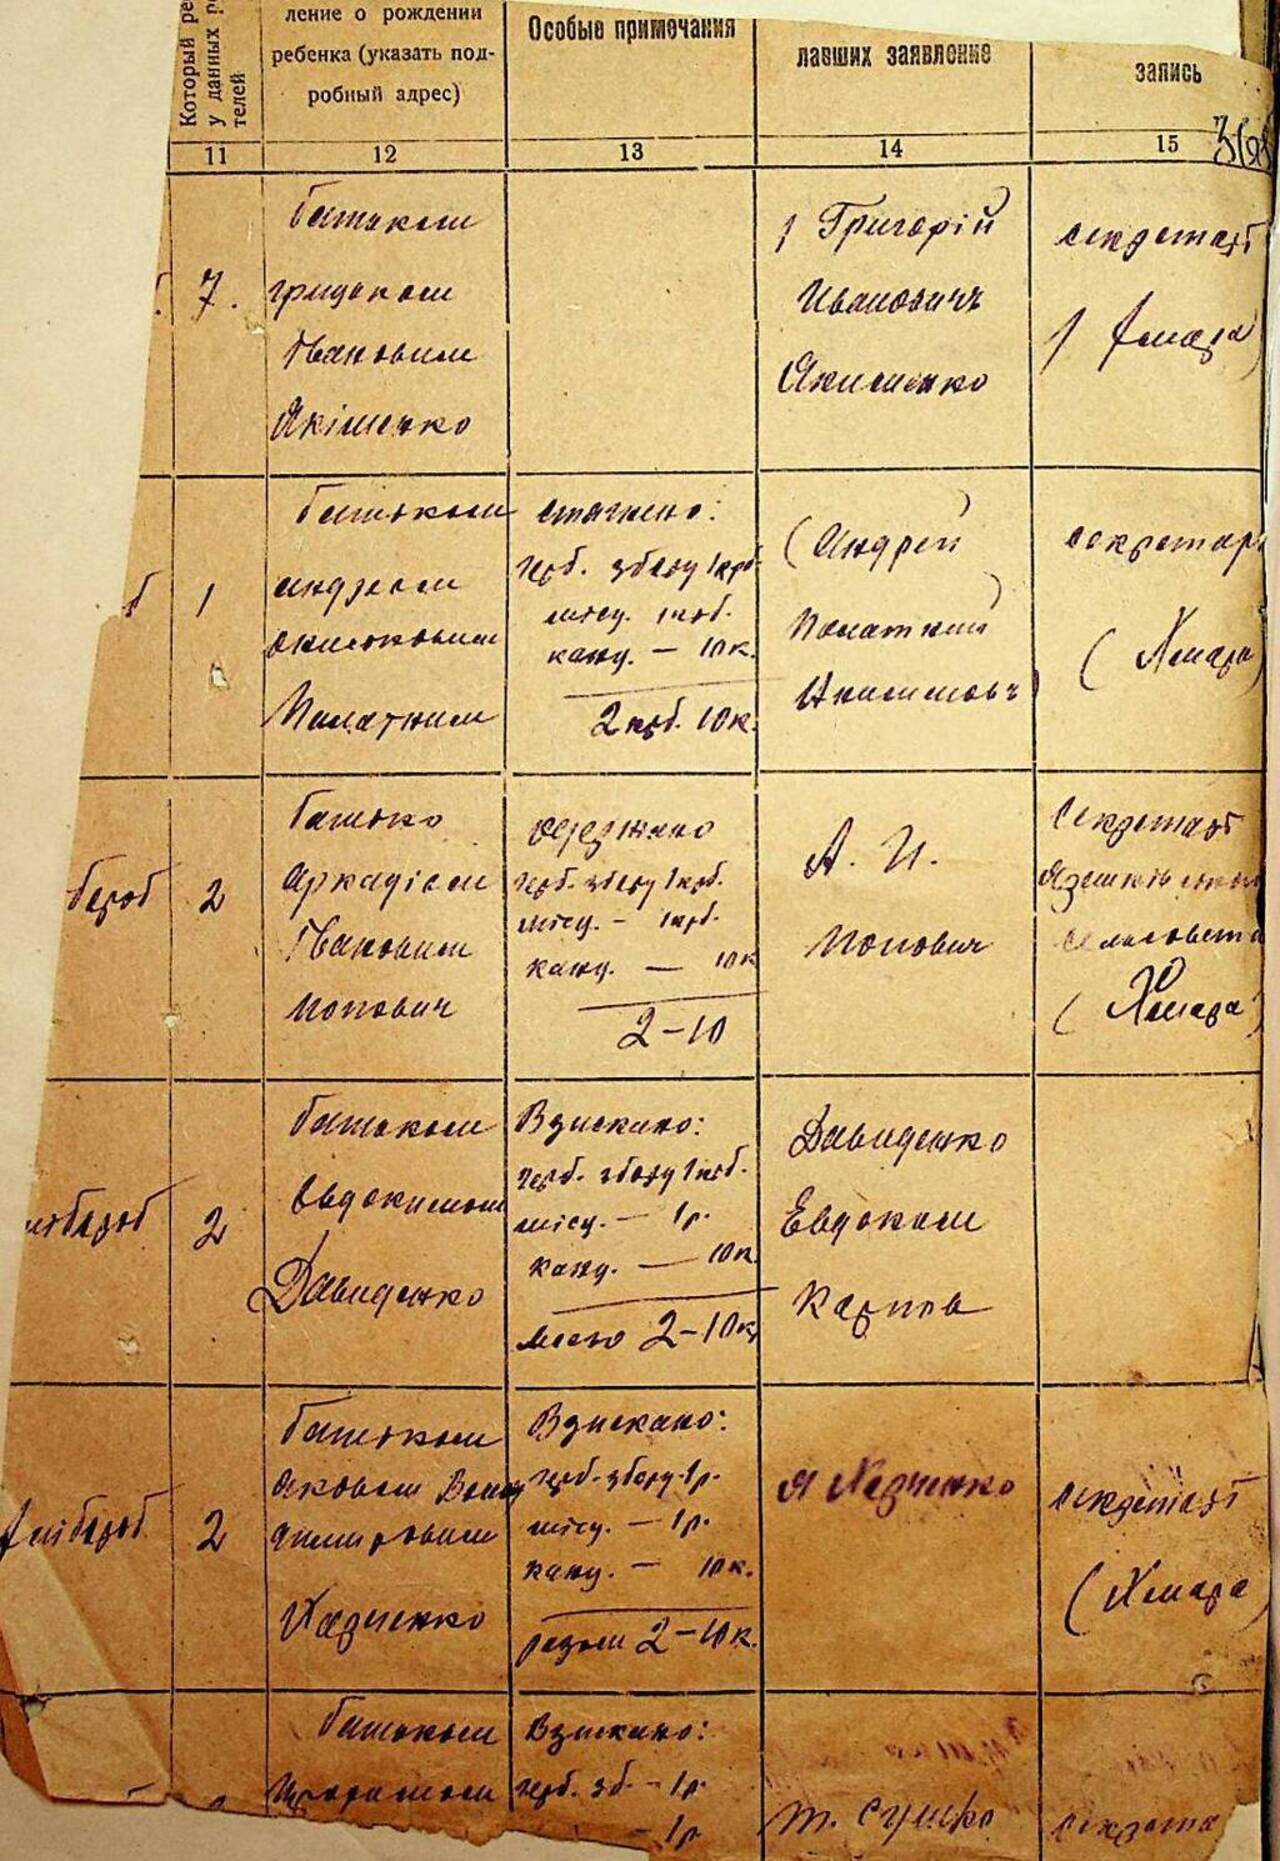 Который ре
у данных ро
телей
ление о рождении
ребенка (указать под-
робный адрес)
Особые примечания
лавших заявление
запись
11
12
13
14
15
7.
батьком
Грицьком
Івановим
Якіменко
Григорій
Иванович
Якименко
секретарь
1
батьком
Андреем
стягнено:
герб. збору 1 крб.
місц. 1 крб.
канц. — 10 к.
2 крб. 10 к.
Андрей
секретар
(Хмара
2
батько
Аркадієм
Івановим
Попович
одержано
герб. збору 1 крб.
місц. — 1 крб.
канц. — 10 к
2-10
А. И.
Попович
Секретарь
сельсовета
(Хмара)
2
батьком
Евдокимом
Давиденко
Взискано:
герб. збору 1 крб.
місц. — 1 р.
канц. — 10 к
всего 2-10 к
Давиденко
Евдоким
Карпов
2
батьком
Яковом
Харченко
Взискано:
герб. збору 1 р.
місц. — 1 р.
канц. — 10 к.
разом 2-10 к.
Я Харченко
секретарь
(Хмара
батьком
Взискано:
герб. зб. — 1 р.
— 1 р
Т. Сушко
секрета